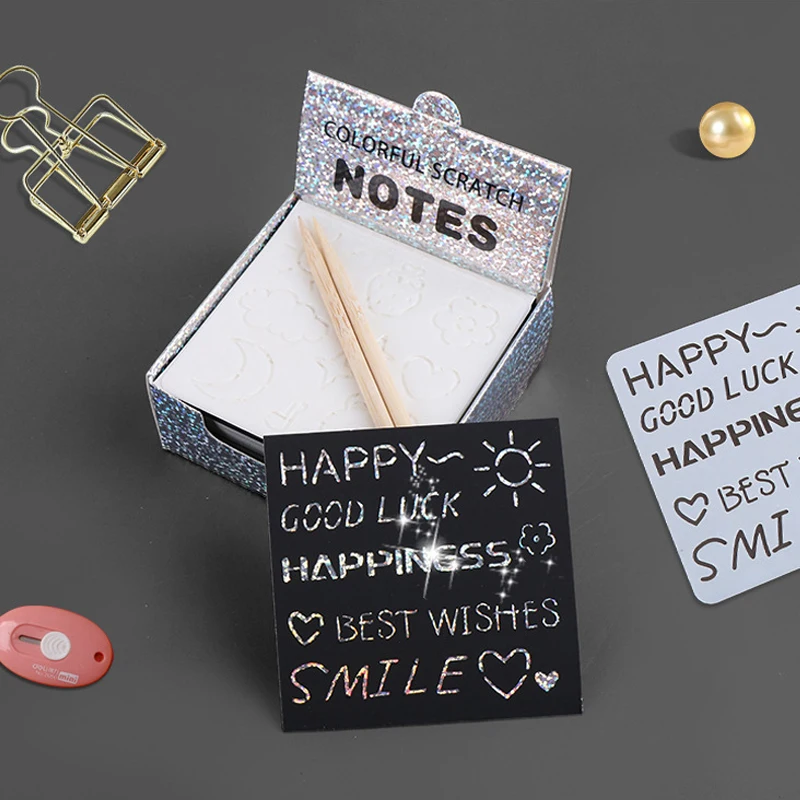 COLORFUL SCRATCH
NOTES
HAPPY
GOOD LUCK
HAPPINESS
BEST WISHES
SMILE
HAPPY
GOOD LUCK
HAPPINE
BEST
SMI
mini